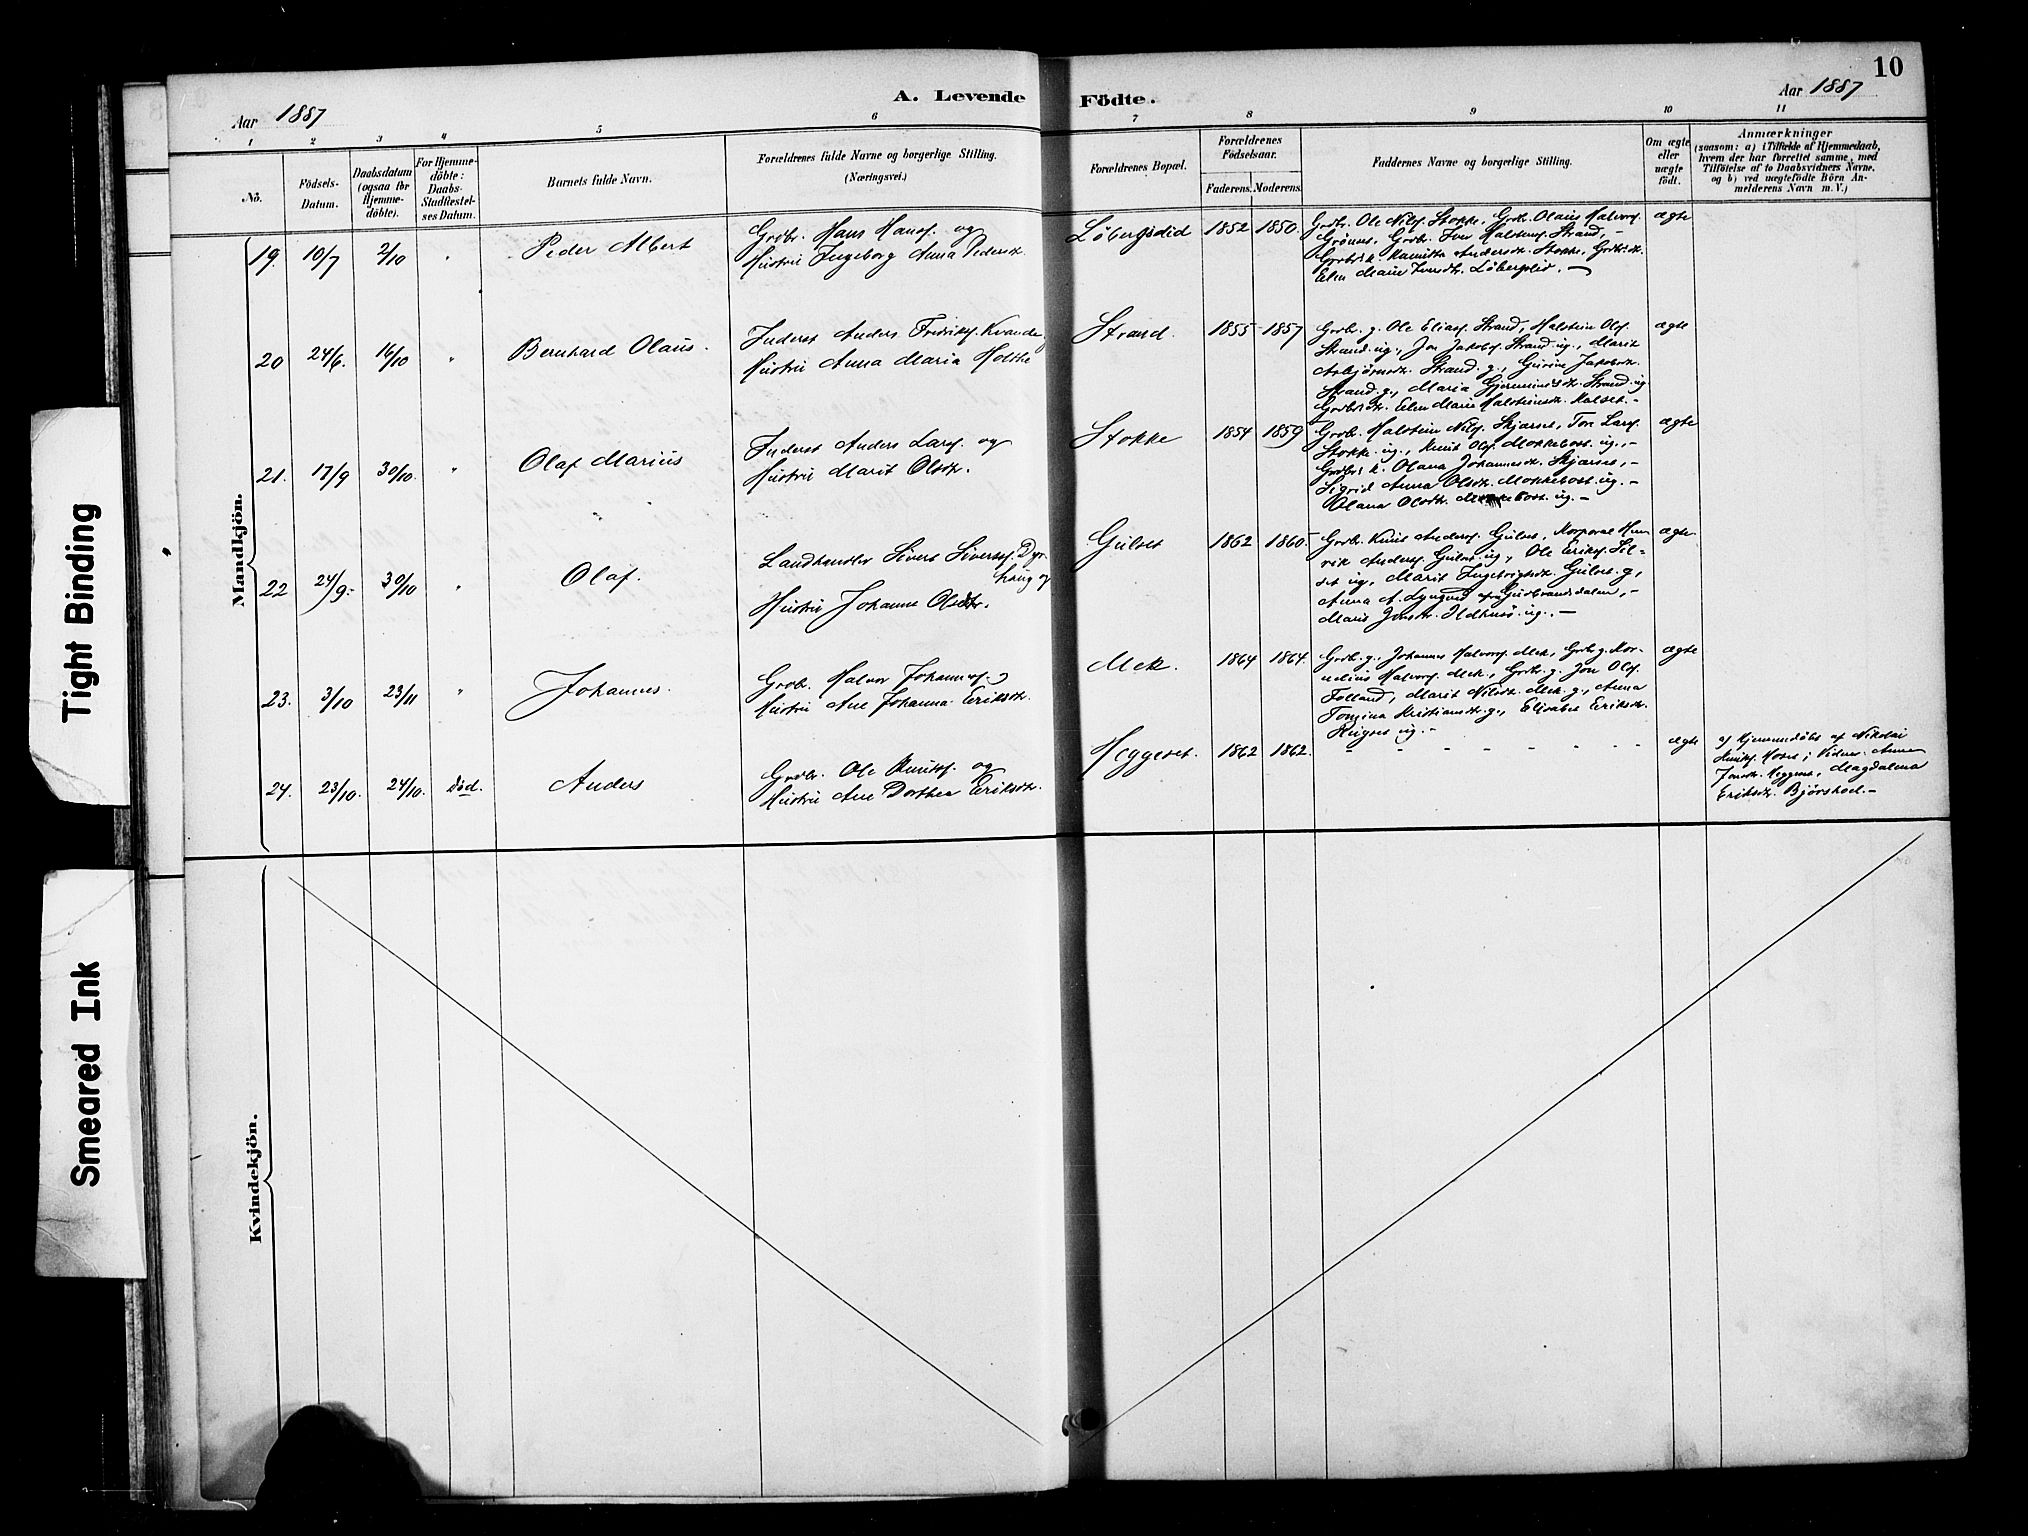 10
Aar 1887
A. Levende Födte.
Aar 1887
1 2 3 4 5 6 7 8 9 10 11
No.
Födsels-Datum.
Daabsdatum (ogsaa for Hjemme-döbte).
For Hjemme-döbte: Daabs-Stadfæstel-ses Datum.
Barnets fulde Navn.
Forældrenes fulde Navne og borgerlige Stilling.
(Næringsvei.)
Forældrenes Bopæl.
Forældrenes Födselsaar.
Faderens. Moderens.
Faddernes Navne og borgerlige Stilling.
Om ægte eller uægte födt.
Anmærkninger
(saasom: a) i Tilfælde af Hjemmedaab,
hvem der har forrettet samme, med
Tilföielse af to Daabsvidners Navne,
og b) ved uægtefödte Börn An-
melderens Navn m. V.)
Mandkjön.
19. 10/7 2/10 " Peder Albert
Grdbr. Hans Hanss. og
Hustru Ingeborg Anna Pedersdtr.
Löbergslid 1852 1850.
Grdbr. Ole Nils. Stokke, Grdbr. Olaus Halvors.
Grönnes, Grdbr. Iver Halstens. Strand, -
Andersdr. Stokke,
Löbergslid. -
ægte
20 24/6. 16/10 " Bernhard Olaus.
Inderst Anders Fredriks. Kvande
Hustru Anna Maria Holthe
Strand. 1855 - 1857
Grdbr. g. Ole Elias. Strand, Halstein Ols.
Strand ug., Jon Jakobs. Strand ug., Marit
Asbjörnsdr. Strand g., Gurine Jakobsdr.
Strand g., Maria Strand ug.
Halset. -
ægte
21. 17/9 30/10. " Olaf Marius
Inderst Anders Lars. og
Hustru Marit Olsdr.
Stokke 1854 1859
Grdbr. Halstein Nils. Skjarset, Lars.
Stokke ug., Knut Ols. Mokkebost. ug., -
Olana Johannesdr. Skjarset, -
Sigrid Anna Olsdr. Mokkebost. ug. -
Olana Olsdr. ug. -
ægte
22 24/9- 30/10 " Olaf.
Landhandler Sivert Siverts. Dyr-
haug og
Hustru Johanne Olsdtr.
Gulset 1862 1860.
Grdbr. Knut Anders. Gulset, Korporal Hen-
rik Anders. Gulset ug., Ole Eriks. Sil-
set ug., Marit Ingebrigtsdr. Gulset g.,
Anna A. Gudbrandsdalen, -
Marit Jonsdr. Ildhusö ug. -
ægte.
23. 3/10 23/11 " Johannes.
Grdbr. Halvor Johanness. og
Hustru Ane Johanna Eriksdr.
Mek. 1864 1864.
Grdbr. g. Johannes Halvors. Mek, Grdbr. g. Kor-
nelius Halvors. Mek., Grdbr. g. Jon Ols.
Folland, Marit Nilsdr. Mek. g., Anna
Tomina Kristiansdr. g., Elisabet Eriksdr.
ug. -
ægte
24. 23/10. 24/10. Död. Anders
Grdbr. Ole Knuts. og
Hustru Ane Dorthea Eriksdr.
Heggeset. 1862 1862.
- - - - - - - -
ægte
a) Hjemmedöbt af Nikolai
Knuts. ; Vidner: Anne
Jonsdr. Heggeset, Magdalena
Eriksdr. -
Kvindekjön.
Tight Binding
Smeared Ink